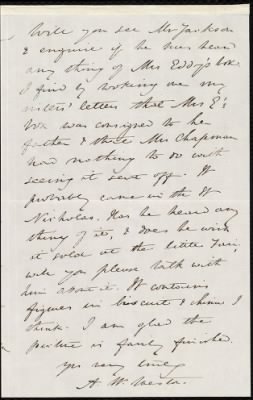 Will you see Mr Jackson
& enquire if he has heard
any thing of Mrs Eddy's box.
I find by looking over my
sisters' letters that Mrs E's
box was consigned to her
father & that Mrs Chapman
had nothing to do with
seeing it sent off. It
probably came in the St
Nicholas. Has he heard any
thing of it, & does he wish
it sold at the little Fair,
will you please talk with
him about it. It contains
figures in biscuit & china I
think. I am glad the
picture is fairly finished.
yrs very truly
A. W. Weston.